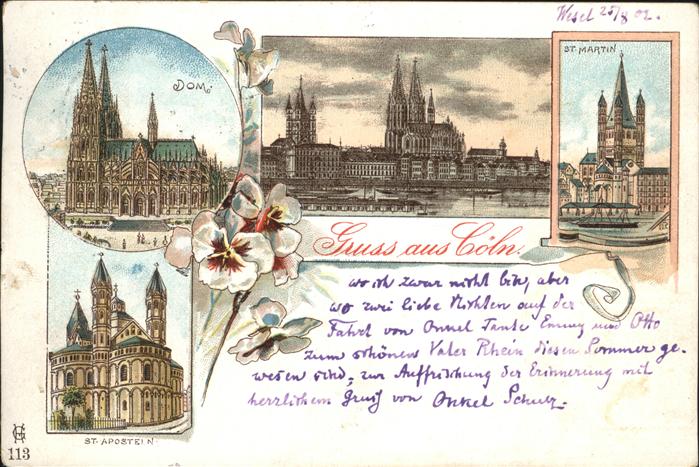 Wesel 25/8 02.
ST. MARTIN
DOM.
Gruss aus Cöln.
wo ich zwar nicht bin, aber
wo zwei liebe Nichten auf der
Fahrt von Onkel Tante Emmy und Otto
zum schönen Vater Rhein diesen Sommer ge-
wesen sind, zur Auffrischung der Erinnerung mit
herzlichem Gruß von Onkel Schulz.
ST. APOSTELN.
113